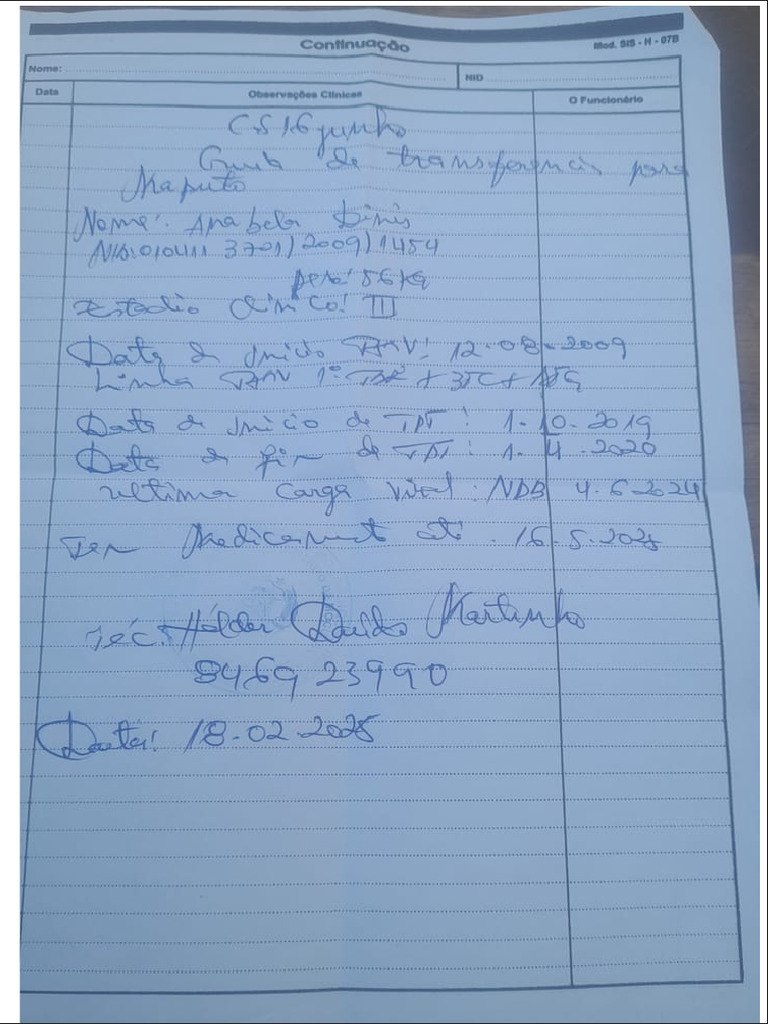 Continuação
Mod. SIS - H - 07B
Nome:
NID
Data
Observações Clínicas
O Funcionário
C.S 16 junho
Guia de transferencia para
Maputo
Nome: Anabela Dinis
NID: 010411 3701/2009/1454
peso: 56 kg
Estadio Clinico: III
Data de Inicio TARV: 12.08.2009
Linha TARV 1ª + 3TC +
Data de Inicio de TPT: 1.10.2019
Data de fim de TPT: 1.4.2020
ultima Carga Viral: 4.6.2024
Tem Medicament até. 16.5.2025
Téc. Hélder Martinho
846923990
Data: 18.02.2025